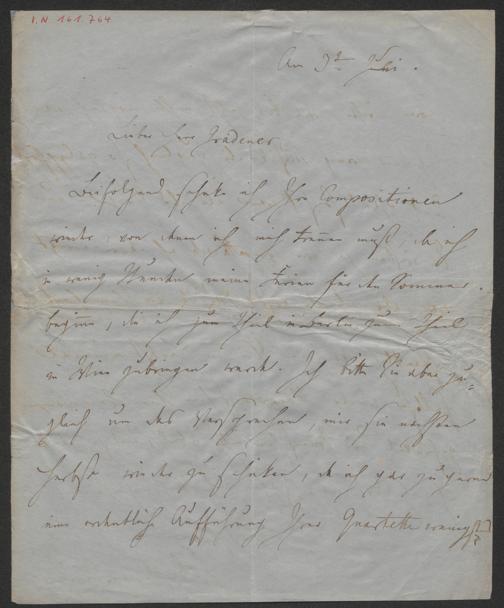 I.N 161.764
Am 9ᵗ Juli.
Lieber Herr Grädener
Beifolgend schicke ich Ihre Compositionen
wieder, von denen ich mich trennen muß, da ich
in wenig Stunden meine Ferien für den Sommer
beginne, die ich zum Theil in Berlin zum Theil
in Wien zubringen werde. Ich bitte Sie aber zu-
gleich um das Versprechen, mir sie nächsten
Herbst wieder zu schicken, da ich gar zu gerne
eine ordentliche Aufführung Ihrer Quartette